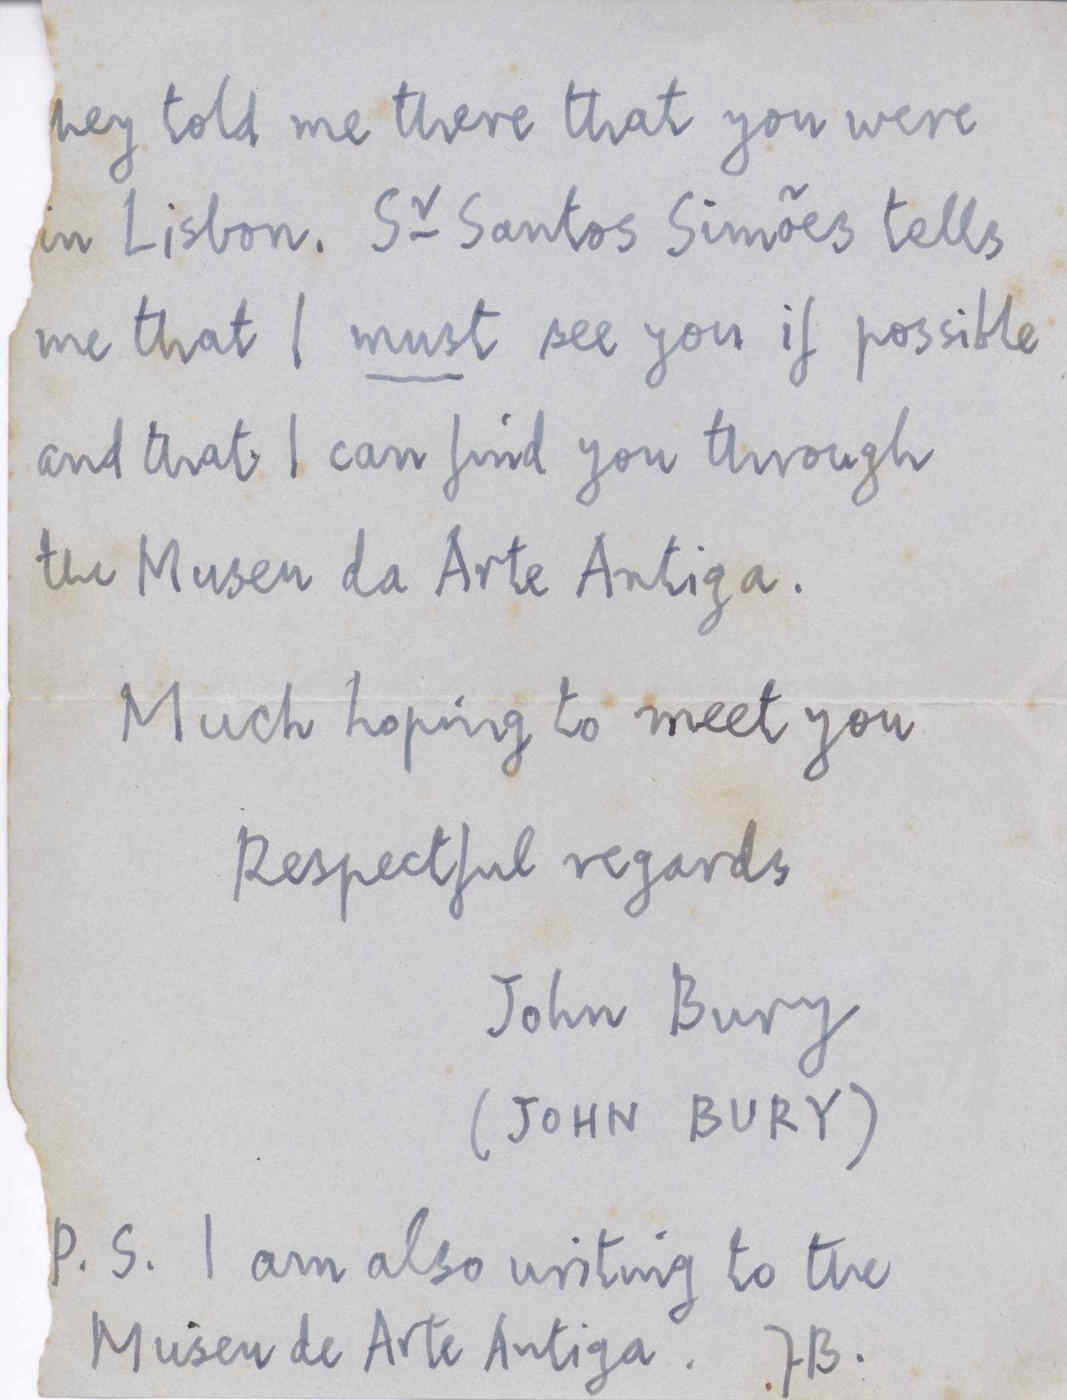 hey told me there that you were
in Lisbon. Sr Santos Simões tells
me that I must see you if possible
and that I can find you through
the Museu da Arte Antiga.
Much hoping to meet you
Respectful regards
John Bury
(JOHN BURY)
P.S. I am also writing to the
Museu de Arte Antiga. JB.